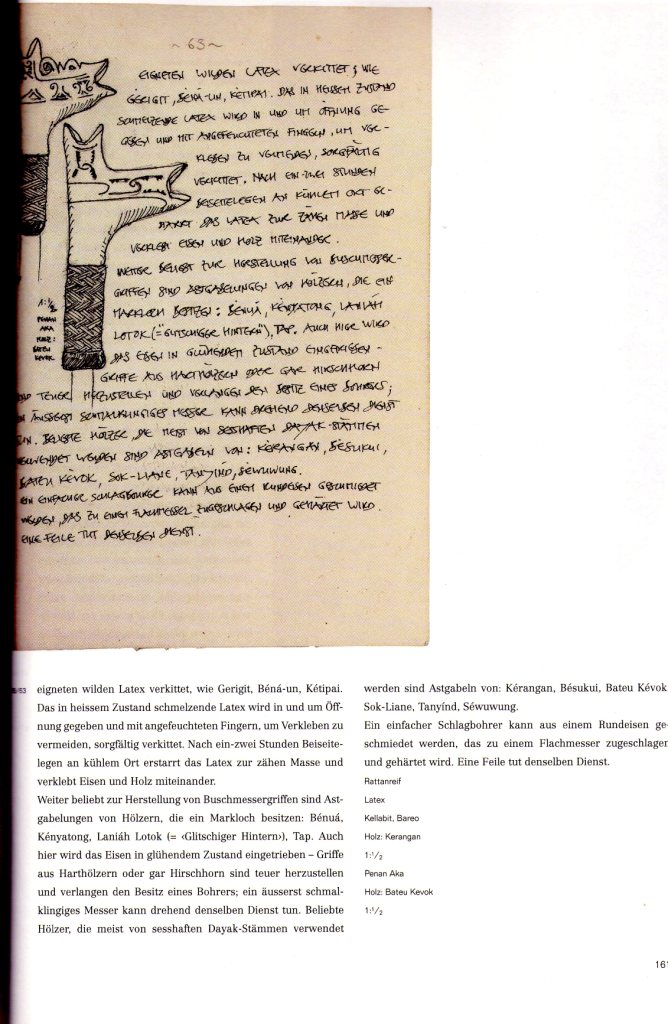 ~ 63 ~
EIGNETEN WILDEN LATEX VERKITTET; WIE
GERIGIT, BÉNÁ-UN, KÉTIPAI. DAS IN HEISSEM ZUSTAND
SCHMELZENDE LATEX WIRD IN UND UM ÖFFNUNG GE-
GEBEN UND MIT ANGEFEUCHTETEN FINGERN, UM VER-
KLEBEN ZU VERMEIDEN, SORGFÄLTIG
VERKITTET. NACH EIN-ZWEI STUNDEN
BEISEITELEGEN AN KÜHLEM ORT ER-
STARRT DAS LATEX ZUR ZÄHEN MASSE UND
VERKLEBT EISEN UND HOLZ MITEINANDER.
WEITER BELIEBT ZUR HERSTELLUNG VON BUSCHMESSER-
GRIFFEN SIND ASTGABELUNGEN VON HÖLZERN, DIE EIN
MARKLOCH BESITZEN: BÉNUÁ, KÉNYATONG, LANIÁH
LOTOK (="GLITSCHIGER HINTERN"), TAP. AUCH HIER WIRD
DAS EISEN IN GLÜHENDEM ZUSTAND EINGETRIEBEN -
GRIFFE AUS HARTHÖLZERN ODER GAR HIRSCHHORN
SIND TEUER HERZUSTELLEN UND VERLANGEN DEN BESITZ EINES BOHRERS;
EIN ÄUSSERST SCHMALKLINGIGES MESSER KANN DREHEND DENSELBEN DIENST
TUN. BELIEBTE HÖLZER, DIE MEIST VON SESSHAFTEN DAYAK-STÄMMEN
VERWENDET WERDEN SIND ASTGABELN VON: KÉRANGAN, BÉSUKUI,
BATEU KÉVOK, SOK-LIANE, TANYÍND, SÉWUWUNG.
EIN EINFACHER SCHLAGBOHRER KANN AUS EINEM RUNDEISEN GESCHMIEDET
WERDEN, DAS ZU EINEM FLACHMESSER ZUGESCHLAGEN UND GEHÄRTET WIRD.
EINE FEILE TUT DENSELBEN DIENST.
1:½
PENAN
AKA
HOLZ:
BATEU
KEVOK
/63
eigneten wilden Latex verkittet, wie Gerigit, Béná-un, Kétipai.
Das in heissem Zustand schmelzende Latex wird in und um Öff-
nung gegeben und mit angefeuchteten Fingern, um Verkleben zu
vermeiden, sorgfältig verkittet. Nach ein-zwei Stunden Beiseite-
legen an kühlem Ort erstarrt das Latex zur zähen Masse und
verklebt Eisen und Holz miteinander.
Weiter beliebt zur Herstellung von Buschmessergriffen sind Ast-
gabelungen von Hölzern, die ein Markloch besitzen: Bénuá,
Kényatong, Laniáh Lotok (= ‹Glitschiger Hintern›), Tap. Auch
hier wird das Eisen in glühendem Zustand eingetrieben – Griffe
aus Harthölzern oder gar Hirschhorn sind teuer herzustellen
und verlangen den Besitz eines Bohrers; ein äusserst schmal-
klingiges Messer kann drehend denselben Dienst tun. Beliebte
Hölzer, die meist von sesshaften Dayak-Stämmen verwendet
werden sind Astgabeln von: Kérangan, Bésukui, Bateu Kévok
Sok-Liane, Tanyínd, Séwuwung.
Ein einfacher Schlagbohrer kann aus einem Rundeisen ge-
schmiedet werden, das zu einem Flachmesser zugeschlagen
und gehärtet wird. Eine Feile tut denselben Dienst.
Rattanreif
Latex
Kellabit, Bareo
Holz: Kerangan
1:½
Penan Aka
Holz: Bateu Kevok
1:½
161